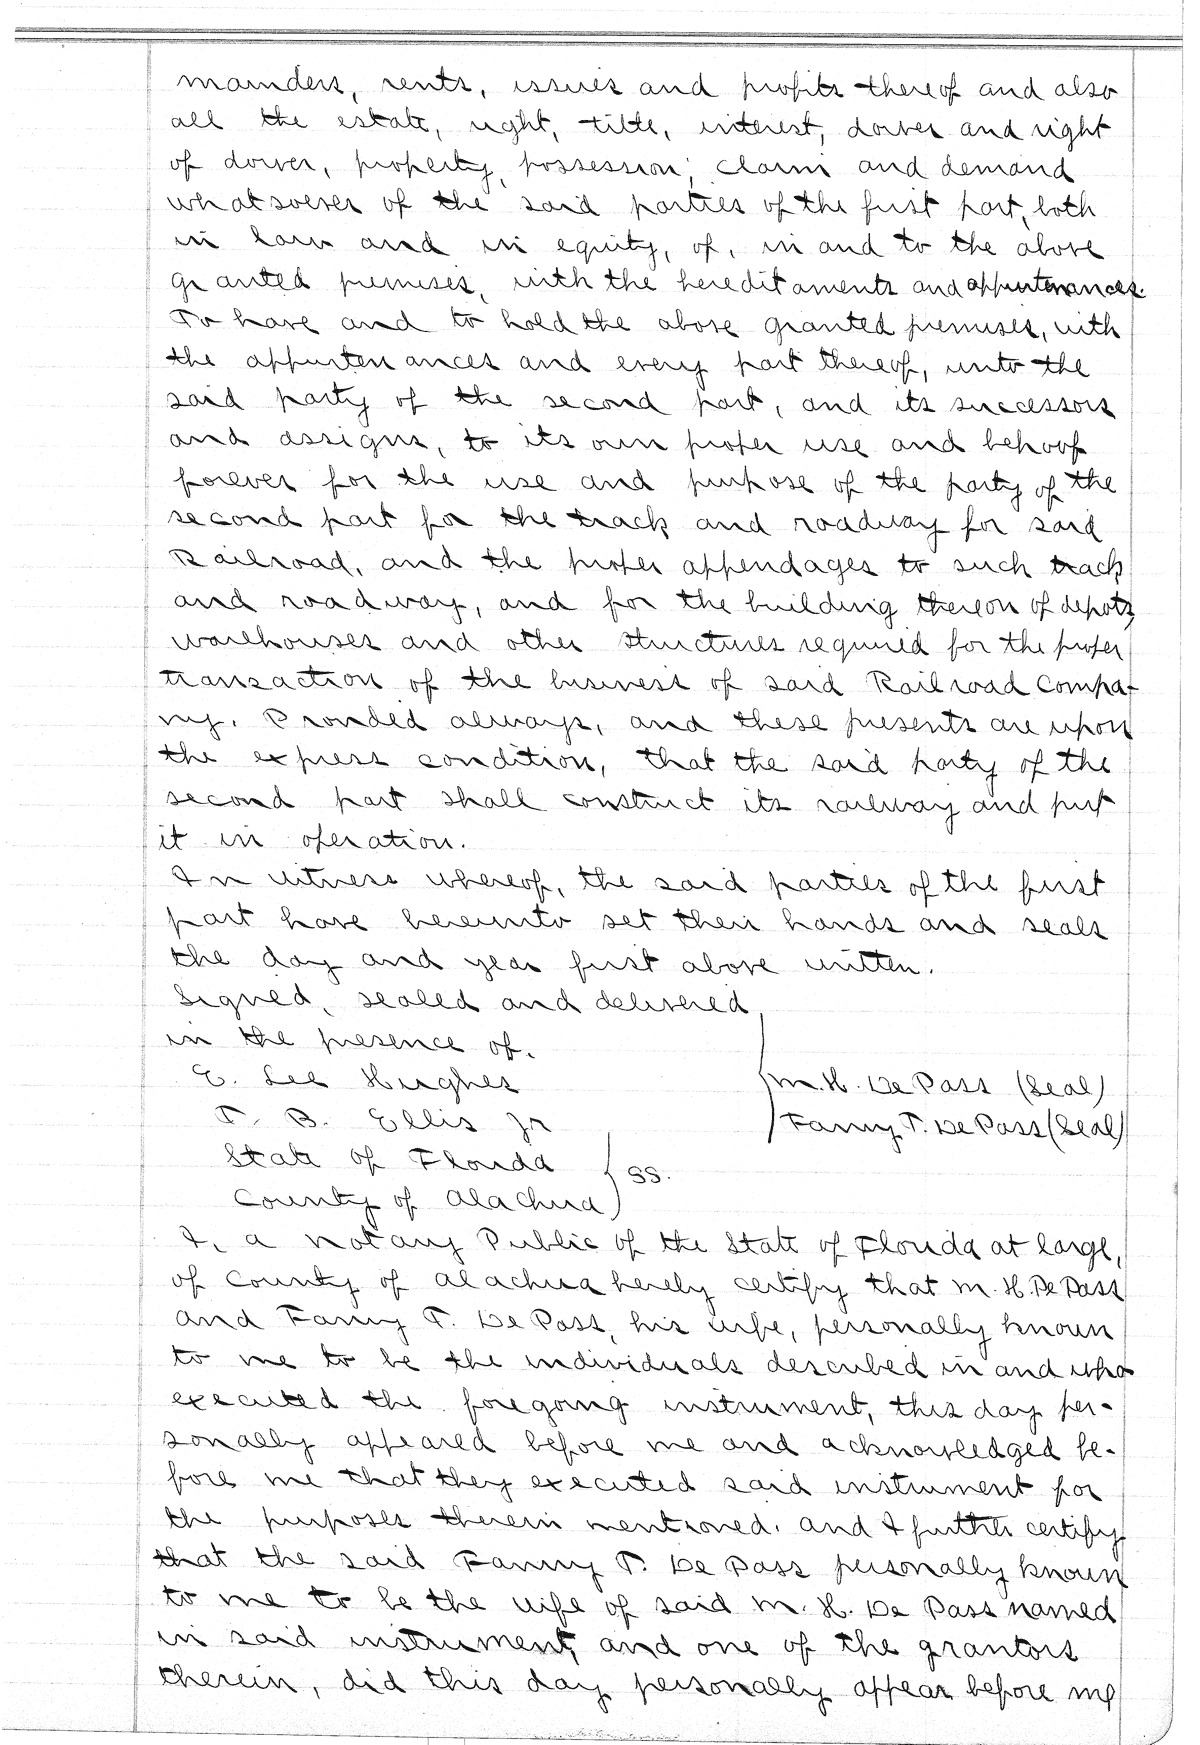 mainders, rents, issues and profits thereof and also
all the estate, right, title, interest, dower and right
of dower, property, possession, claim and demand
whatsoever of the said parties of the first part, both
in law and in equity, of, in and to the above
granted premises, with the hereditaments and appurtenances.
To have and to hold the above granted premises, with
the appurtenances and every part thereof, unto the
said party of the second part, and its successors
and assigns, to its own proper use and behoof
forever for the use and purpose of the party of the
second part for the track and roadway for said
Railroad, and the proper appendages to such track
and roadway, and for the building thereon of depots,
warehouses and other structures required for the proper
transaction of the business of said Railroad Compa-
ny. Provided always, and these presents are upon
the express condition, that the said party of the
second part shall construct its railway and put
it in operation.
In witness whereof, the said parties of the first
part have hereunto set their hands and seals
the day and year first above written.
Signed, sealed and delivered
in the presence of.
E. Lee Hughes
M. H. De Pass (Seal)
T. B. Ellis Jr
Fanny T. De Pass (Seal)
State of Florida
SS.
County of Alachua
I, a Notary Public of the State of Florida at large,
of County of Alachua hereby certify that M. H. De Pass
and Fanny T. De Pass, his wife, personally known
to me to be the individuals described in and who
executed the foregoing instrument, this day per-
sonally appeared before me and acknowledged be-
fore me that they executed said instrument for
the purposes therein mentioned. and I further certify
that the said Fanny T. De Pass personally known
to me to be the wife of said M. H. De Pass named
in said instrument, and one of the grantors
therein, did this day personally appear before me